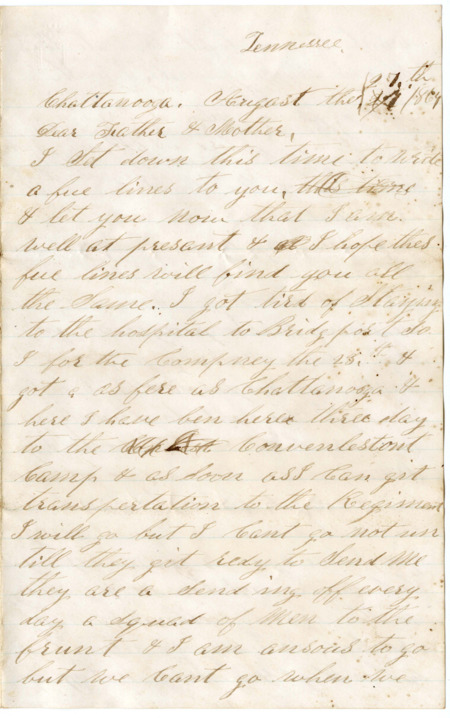 Tennessee
Chattanooga. August the 27th 1864
Dear Father & Mother,
I Set down this time to write
a fue lines to you, this time
& let you now that I am
well at present & I hope thes
fue lines will find you all
the Same. I got tird of Staying
to the hospital to Bridgport So
I for the Compney the 25th &
got a as fere as Chattanooga &
here I have ben here three day
to the Convenlestont
Camp & as Soon as I Can get
transpertation to the Regiment
I will go but I Cant go not un
till they git redy to Send Me
they are a Send ing off every
day a Squad of Men to the
frunt & I am ansous to go
but we Cant go when we